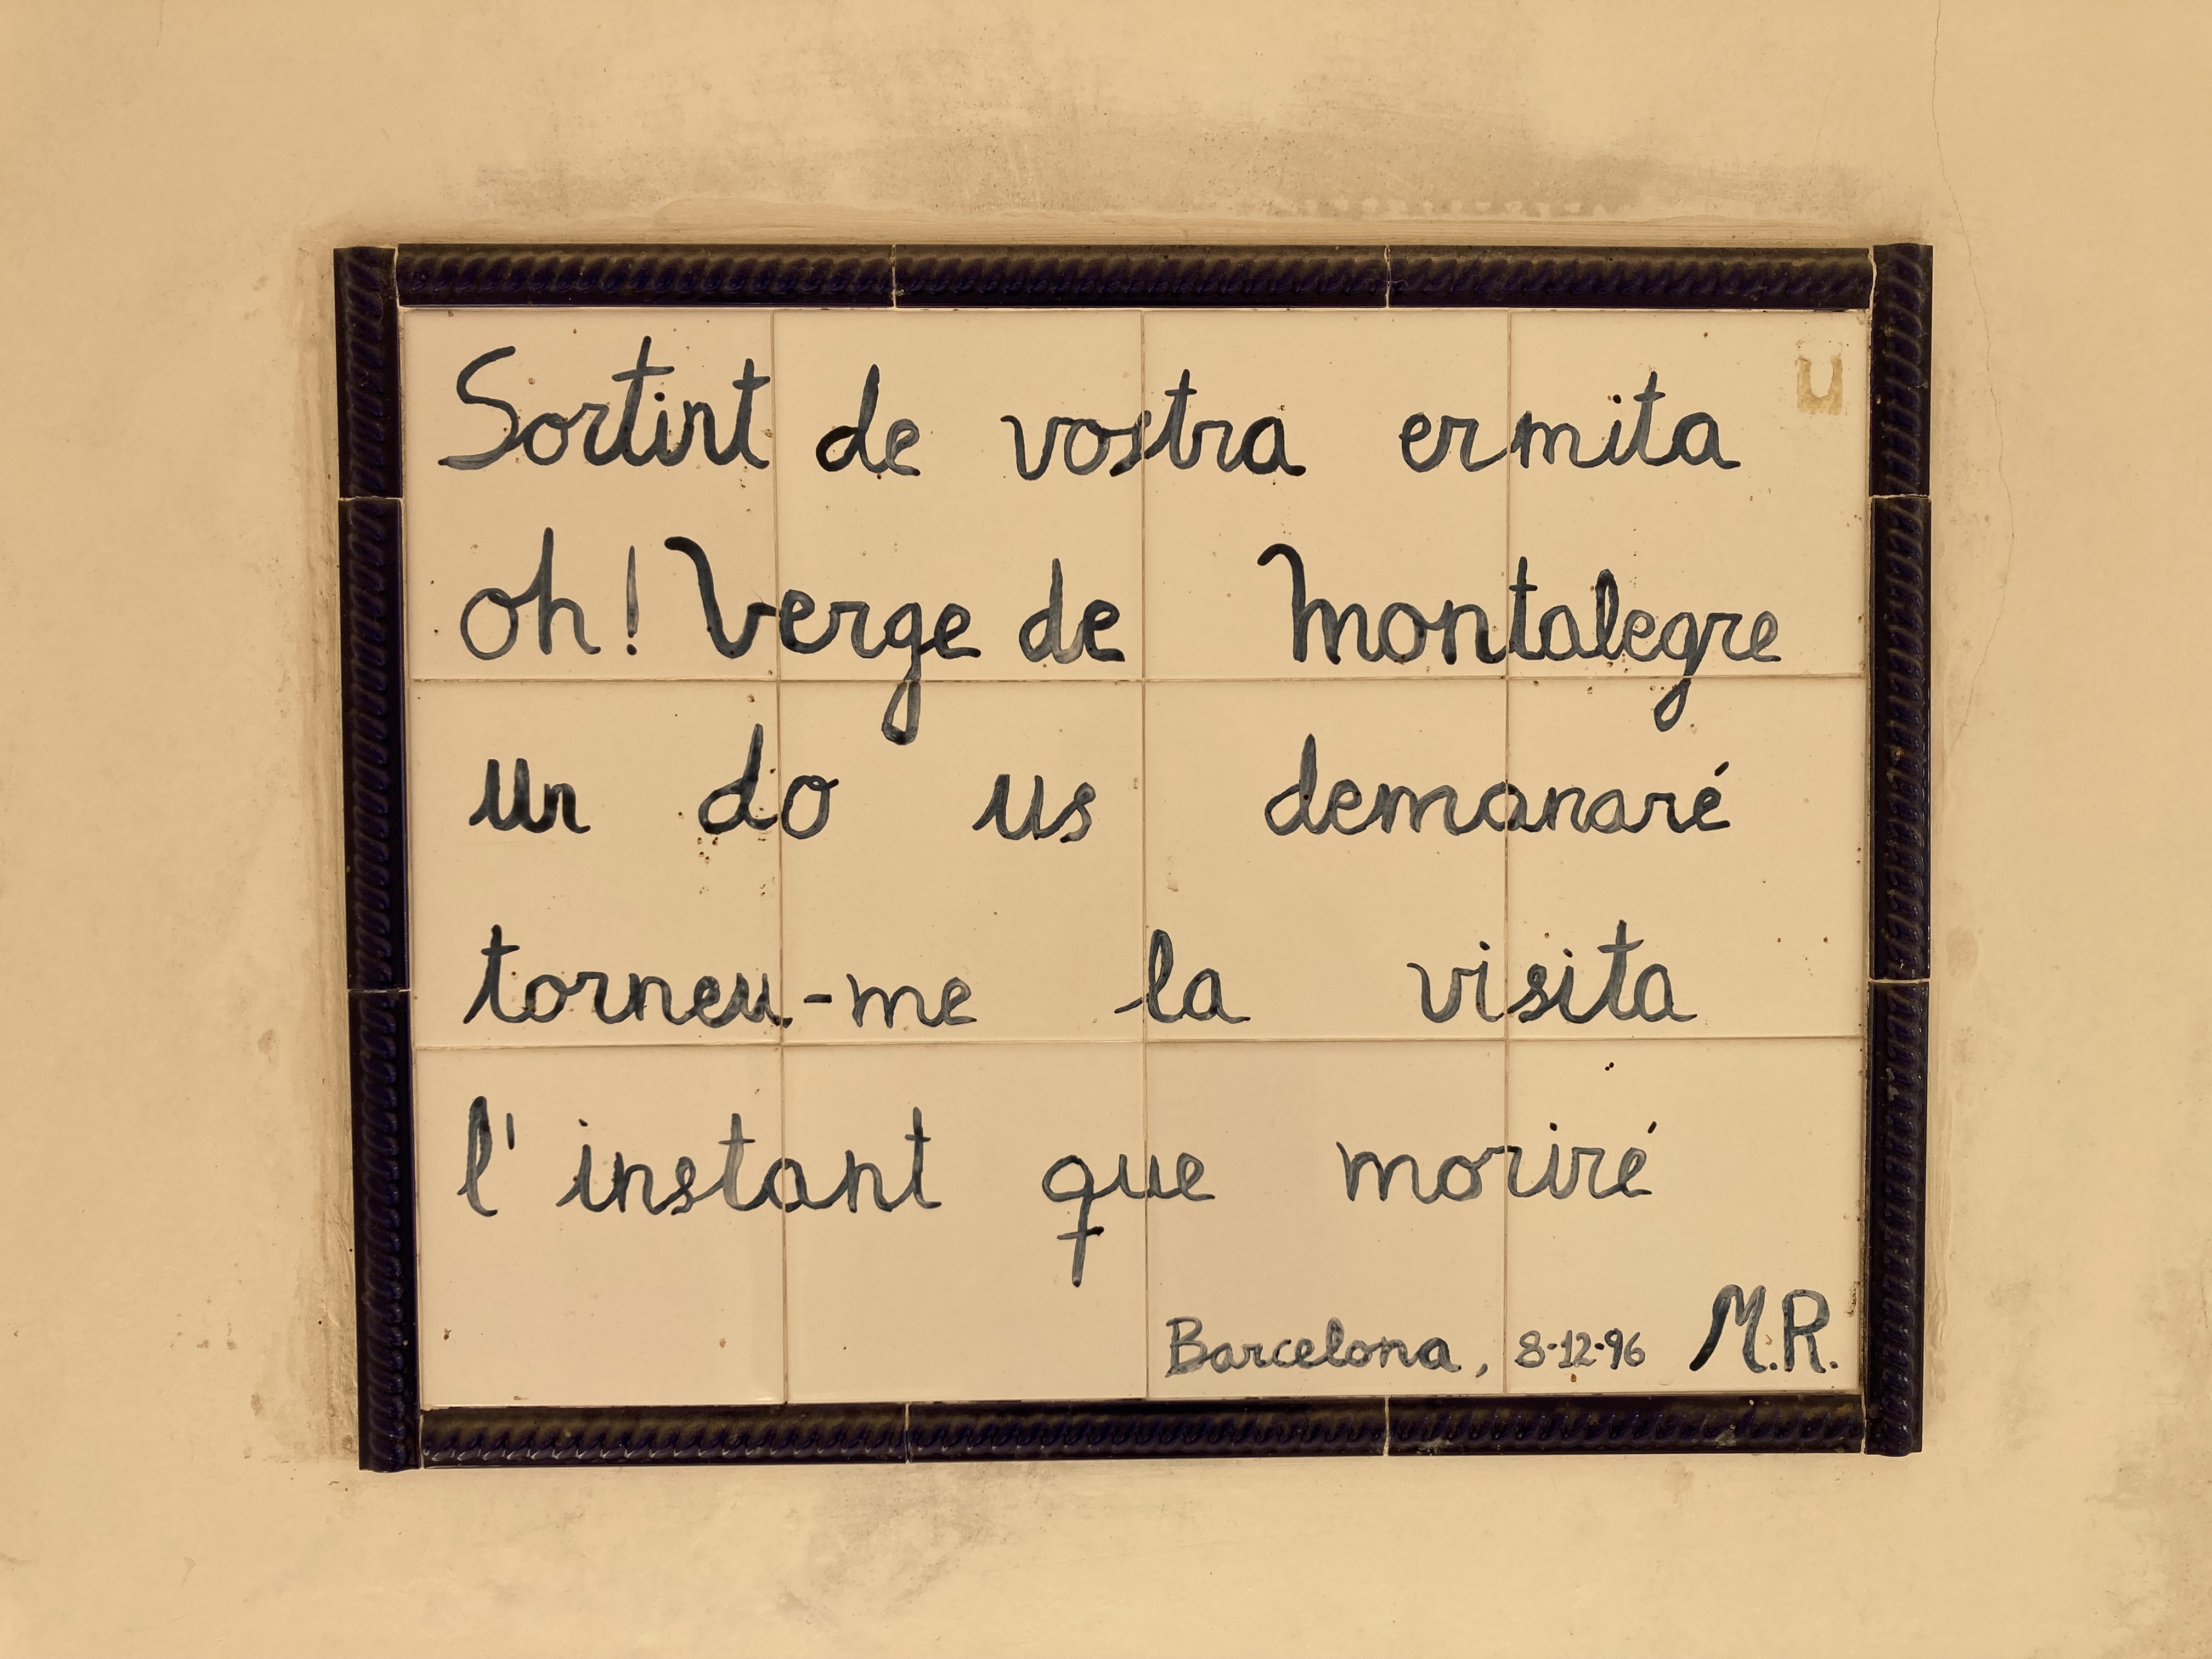 Sortint de vostra ermita
oh! Verge de Montalegre
un do us demanaré
torneu-me la visita
l'instant que moriré
Barcelona, 8-12-96 M.R.